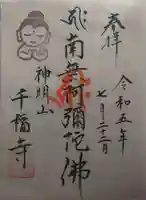 奉拝
令和五年
七月二十二日
南無阿彌陀佛
神明山
千福寺